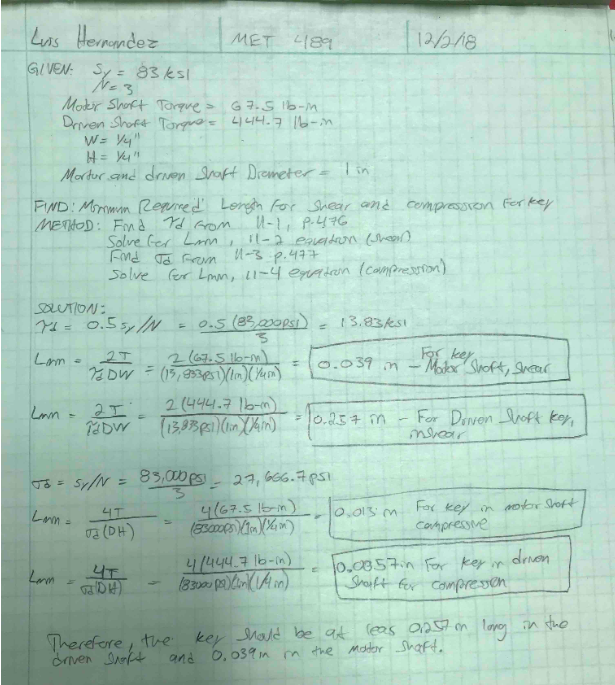 Luis Hernandez MET 489 12/2/18
GIVEN: Sy = 83 ksi
N = 3
Motor Shaft Torque = 67.5 lb-in
Driven Shaft Torque = 444.7 lb-in
W = 1/4"
H = 1/4"
Mortor and driven Shaft Diameter = 1 in
FIND: Minimum Required Length For Shear and compression For key
METHOD: Find τd From 11-1, P.476
Solve For Lmin, 11-2 equation (shear)
Find σd From 11-3 P.477
Solve for Lmin, 11-4 equation (compression)
SOLUTION:
τd = 0.5 Sy/N = 0.5 (83,000 psi)/3 = 13.83 ksi
Lmin = 2T/τdDW = 2(67.5 lb-in)/(13,833 psi)(1in)(1/4in) = 0.039 in - For key Motor Shaft, Shear
Lmin = 2T/τdDW = 2(444.7 lb-in)/(13,833 psi)(1in)(1/4in) = 0.257 in - For Driven Shaft key, in shear
σd = Sy/N = 83,000 psi/3 = 27,666.7 psi
Lmin = 4T/σd(DH) = 4(67.5 lb-in)/(83000 psi)(1in)(1/4in) = 0.013 in For key in motor shaft compressive
Lmin = 4T/σd(DH) = 4(444.7 lb-in)/(83000 psi)(1in)(1/4in) = 0.0857 in For key in driven Shaft for compression
Therefore, the key should be at leas 0.257 in long in the
driven Shaft and 0.039 in in the motor Shaft.